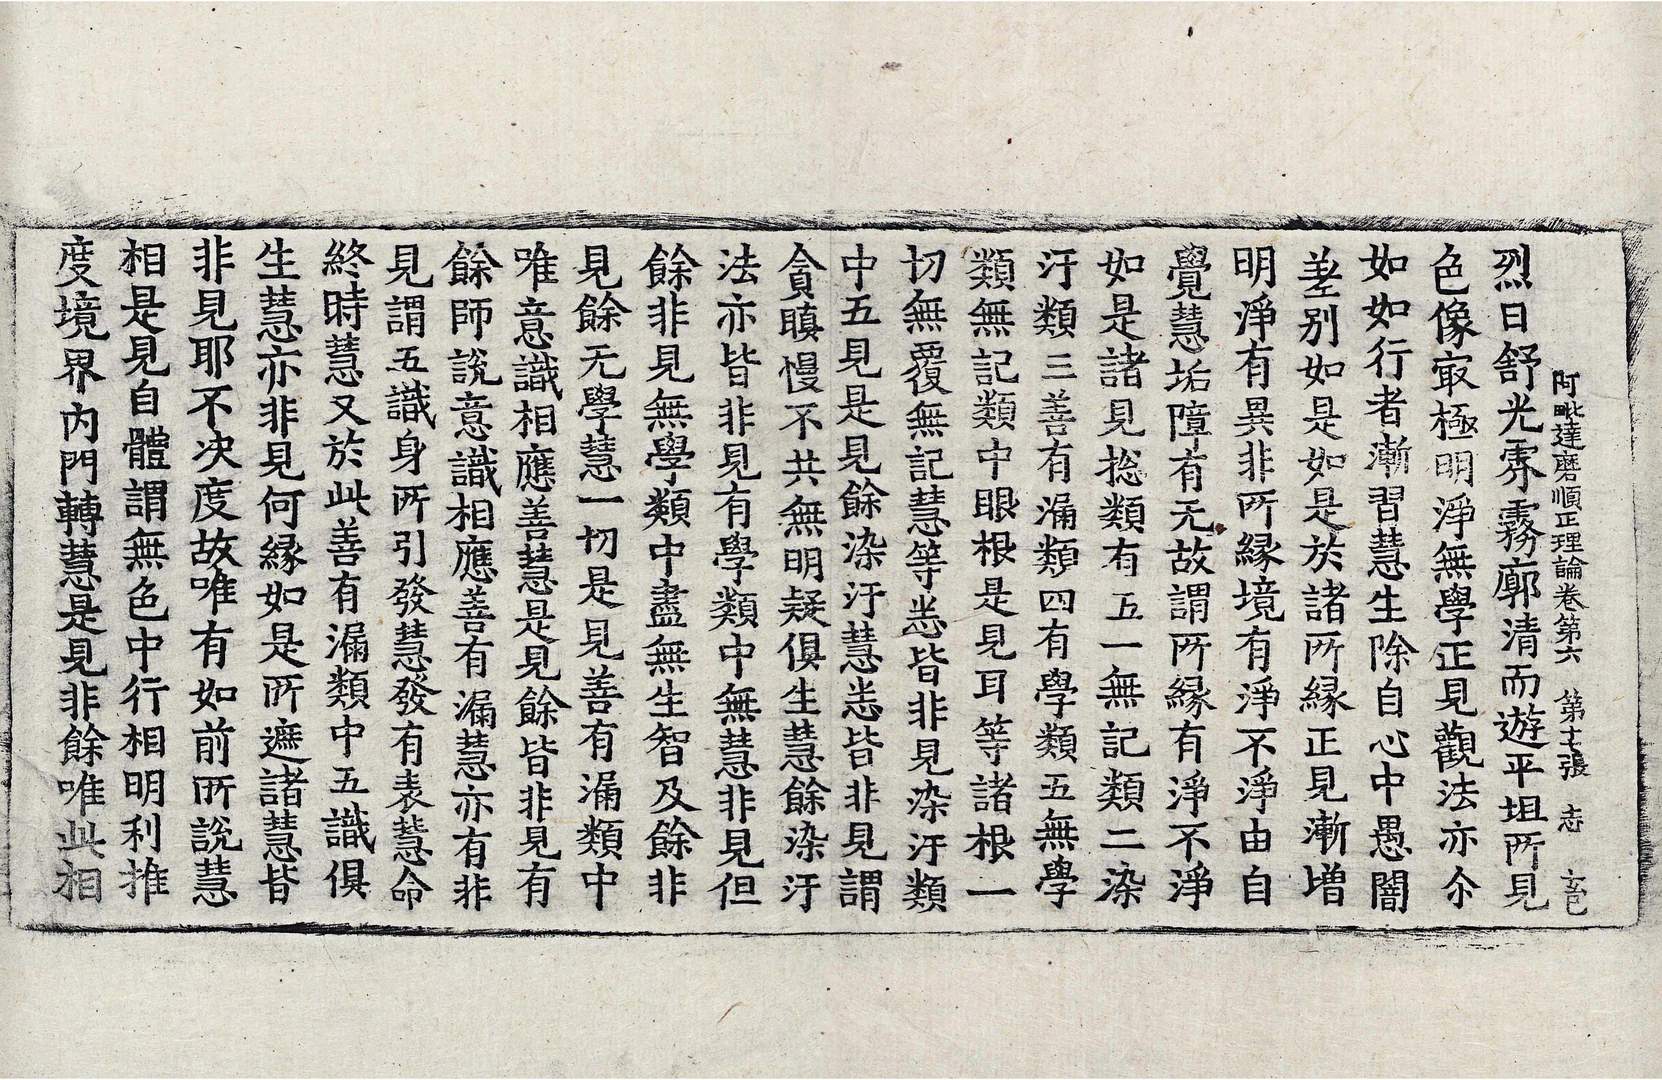 阿毗達磨順正理論卷第六 第十張 志
烈日舒光雰霧廓清而遊平坦所見
色像㝡極明淨無學正見觀法亦尒
如如行者漸習慧生除自心中愚闇
差別如是如是於諸所緣正見漸增
明淨有異非所緣境有淨不淨由自
覺慧垢障有无故謂所緣有淨不淨
如是諸見捴類有五一無記類二染
汙類三善有漏類四有學類五無學
類無記類中眼根是見耳等諸根一
切無覆無記慧等悉皆非見染汙類
中五見是見餘染汙慧悉皆非見謂
貪瞋慢不共無明疑俱生慧餘染汙
法亦皆非見有學類中無慧非見但
餘非見無學類中盡無生智及餘非
見餘无學慧一切是見善有漏類中
唯意識相應善慧是見餘皆非見有
餘師說意識相應善有漏慧亦有非
見謂五識身所引發慧發有表慧命
終時慧又於此善有漏類中五識俱
生慧亦非見何緣如是所遮諸慧皆
非見耶不決度故唯有如前所說慧
相是見自體謂無色中行相明利推
度境界內門轉慧是見非餘唯此相